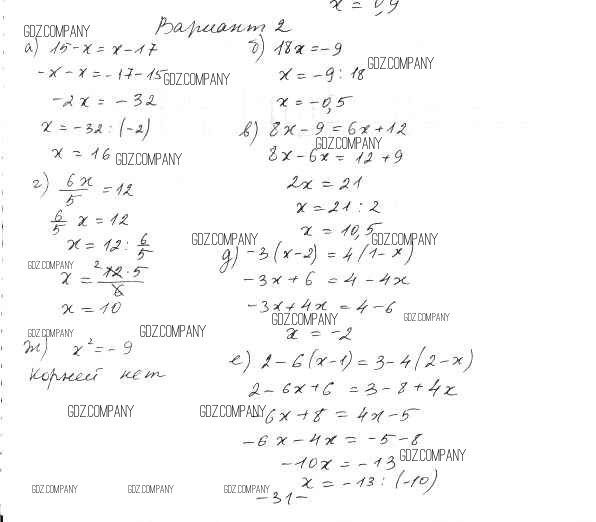 x = 0,9
Вариант 2
GDZ.COMPANY
а) 15-x = x-17
-x-x = -17-15
GDZ.COMPANY
-2x = -32
x = -32 : (-2)
x = 16
GDZ.COMPANY
б) 18x = -9
GDZ.COMPANY
x = -9 : 18
x = -0,5
в) 8x - 9 = 6x + 12
GDZ.COMPANY
8x - 6x = 12 + 9
2x = 21
x = 21 : 2
x = 10,5
г) 6x/5 = 12
6/5 x = 12
x = 12 : 6/5
GDZ.COMPANY
x = 2 12 · 5 / 6
x = 10
GDZ.COMPANY
GDZ.COMPANY
GDZ.COMPANY
д) -3(x-2) = 4(1-x)
-3x + 6 = 4 - 4x
-3x + 4x = 4 - 6
GDZ.COMPANY
GDZ.COMPANY
x = -2
GDZ.COMPANY
ж) x² = -9
корней нет
е) 2 - 6(x-1) = 3 - 4(2-x)
2 - 6x + 6 = 3 - 8 + 4x
GDZ.COMPANY
GDZ.COMPANY
-6x + 8 = 4x - 5
-6x - 4x = -5 - 8
GDZ.COMPANY
-10x = -13
x = -13 : (-10)
GDZ.COMPANY
GDZ.COMPANY
GDZ.COMPANY
-31-